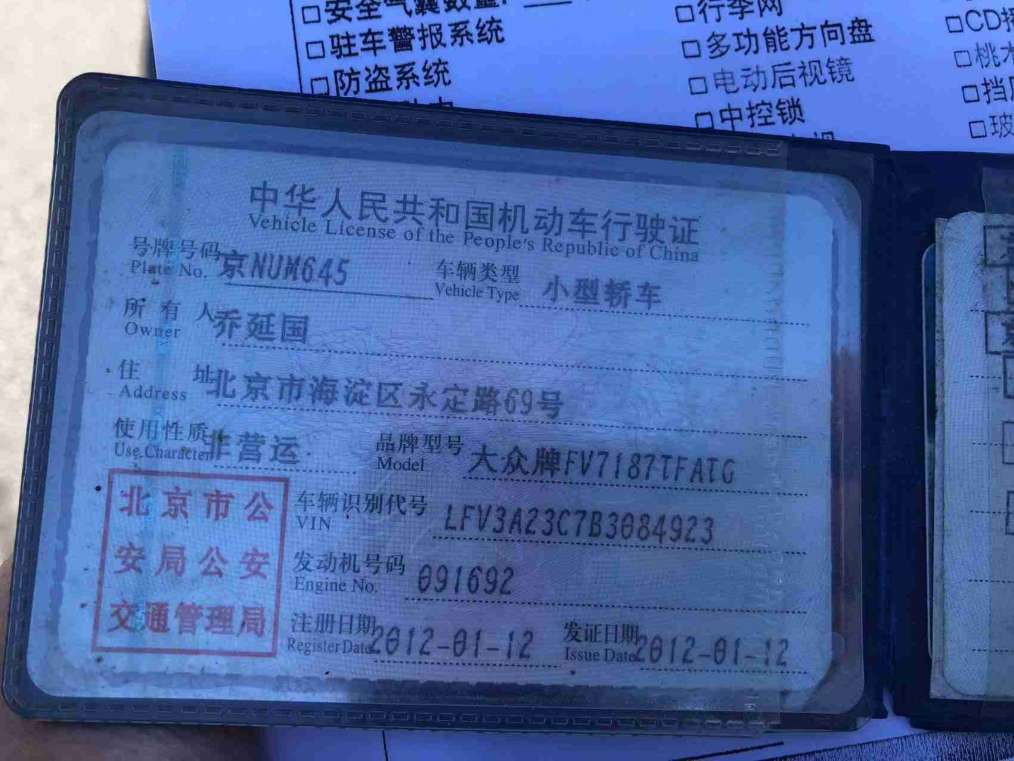 □安全气囊数量:
□驻车警报系统
□防盗系统
□行李网
□多功能方向盘
□电动后视镜
□中控锁
□CD播
□桃木
□挡
□玻
中华人民共和国机动车行驶证
Vehicle License of the People's Republic of China
号牌号码 京NUM645 车辆类型 小型轿车
Plate No. Vehicle Type
所有人 乔延国
Owner
住址 北京市海淀区永定路69号
Address
使用性质 非营运 品牌型号 大众牌FV7187TFATG
Use Character Model
北京市公
安局公安
交通管理局
车辆识别代号 LFV3A23C7B3084923
VIN
发动机号码 091692
Engine No.
注册日期 2012-01-12 发证日期 2012-01-12
Register Date Issue Date